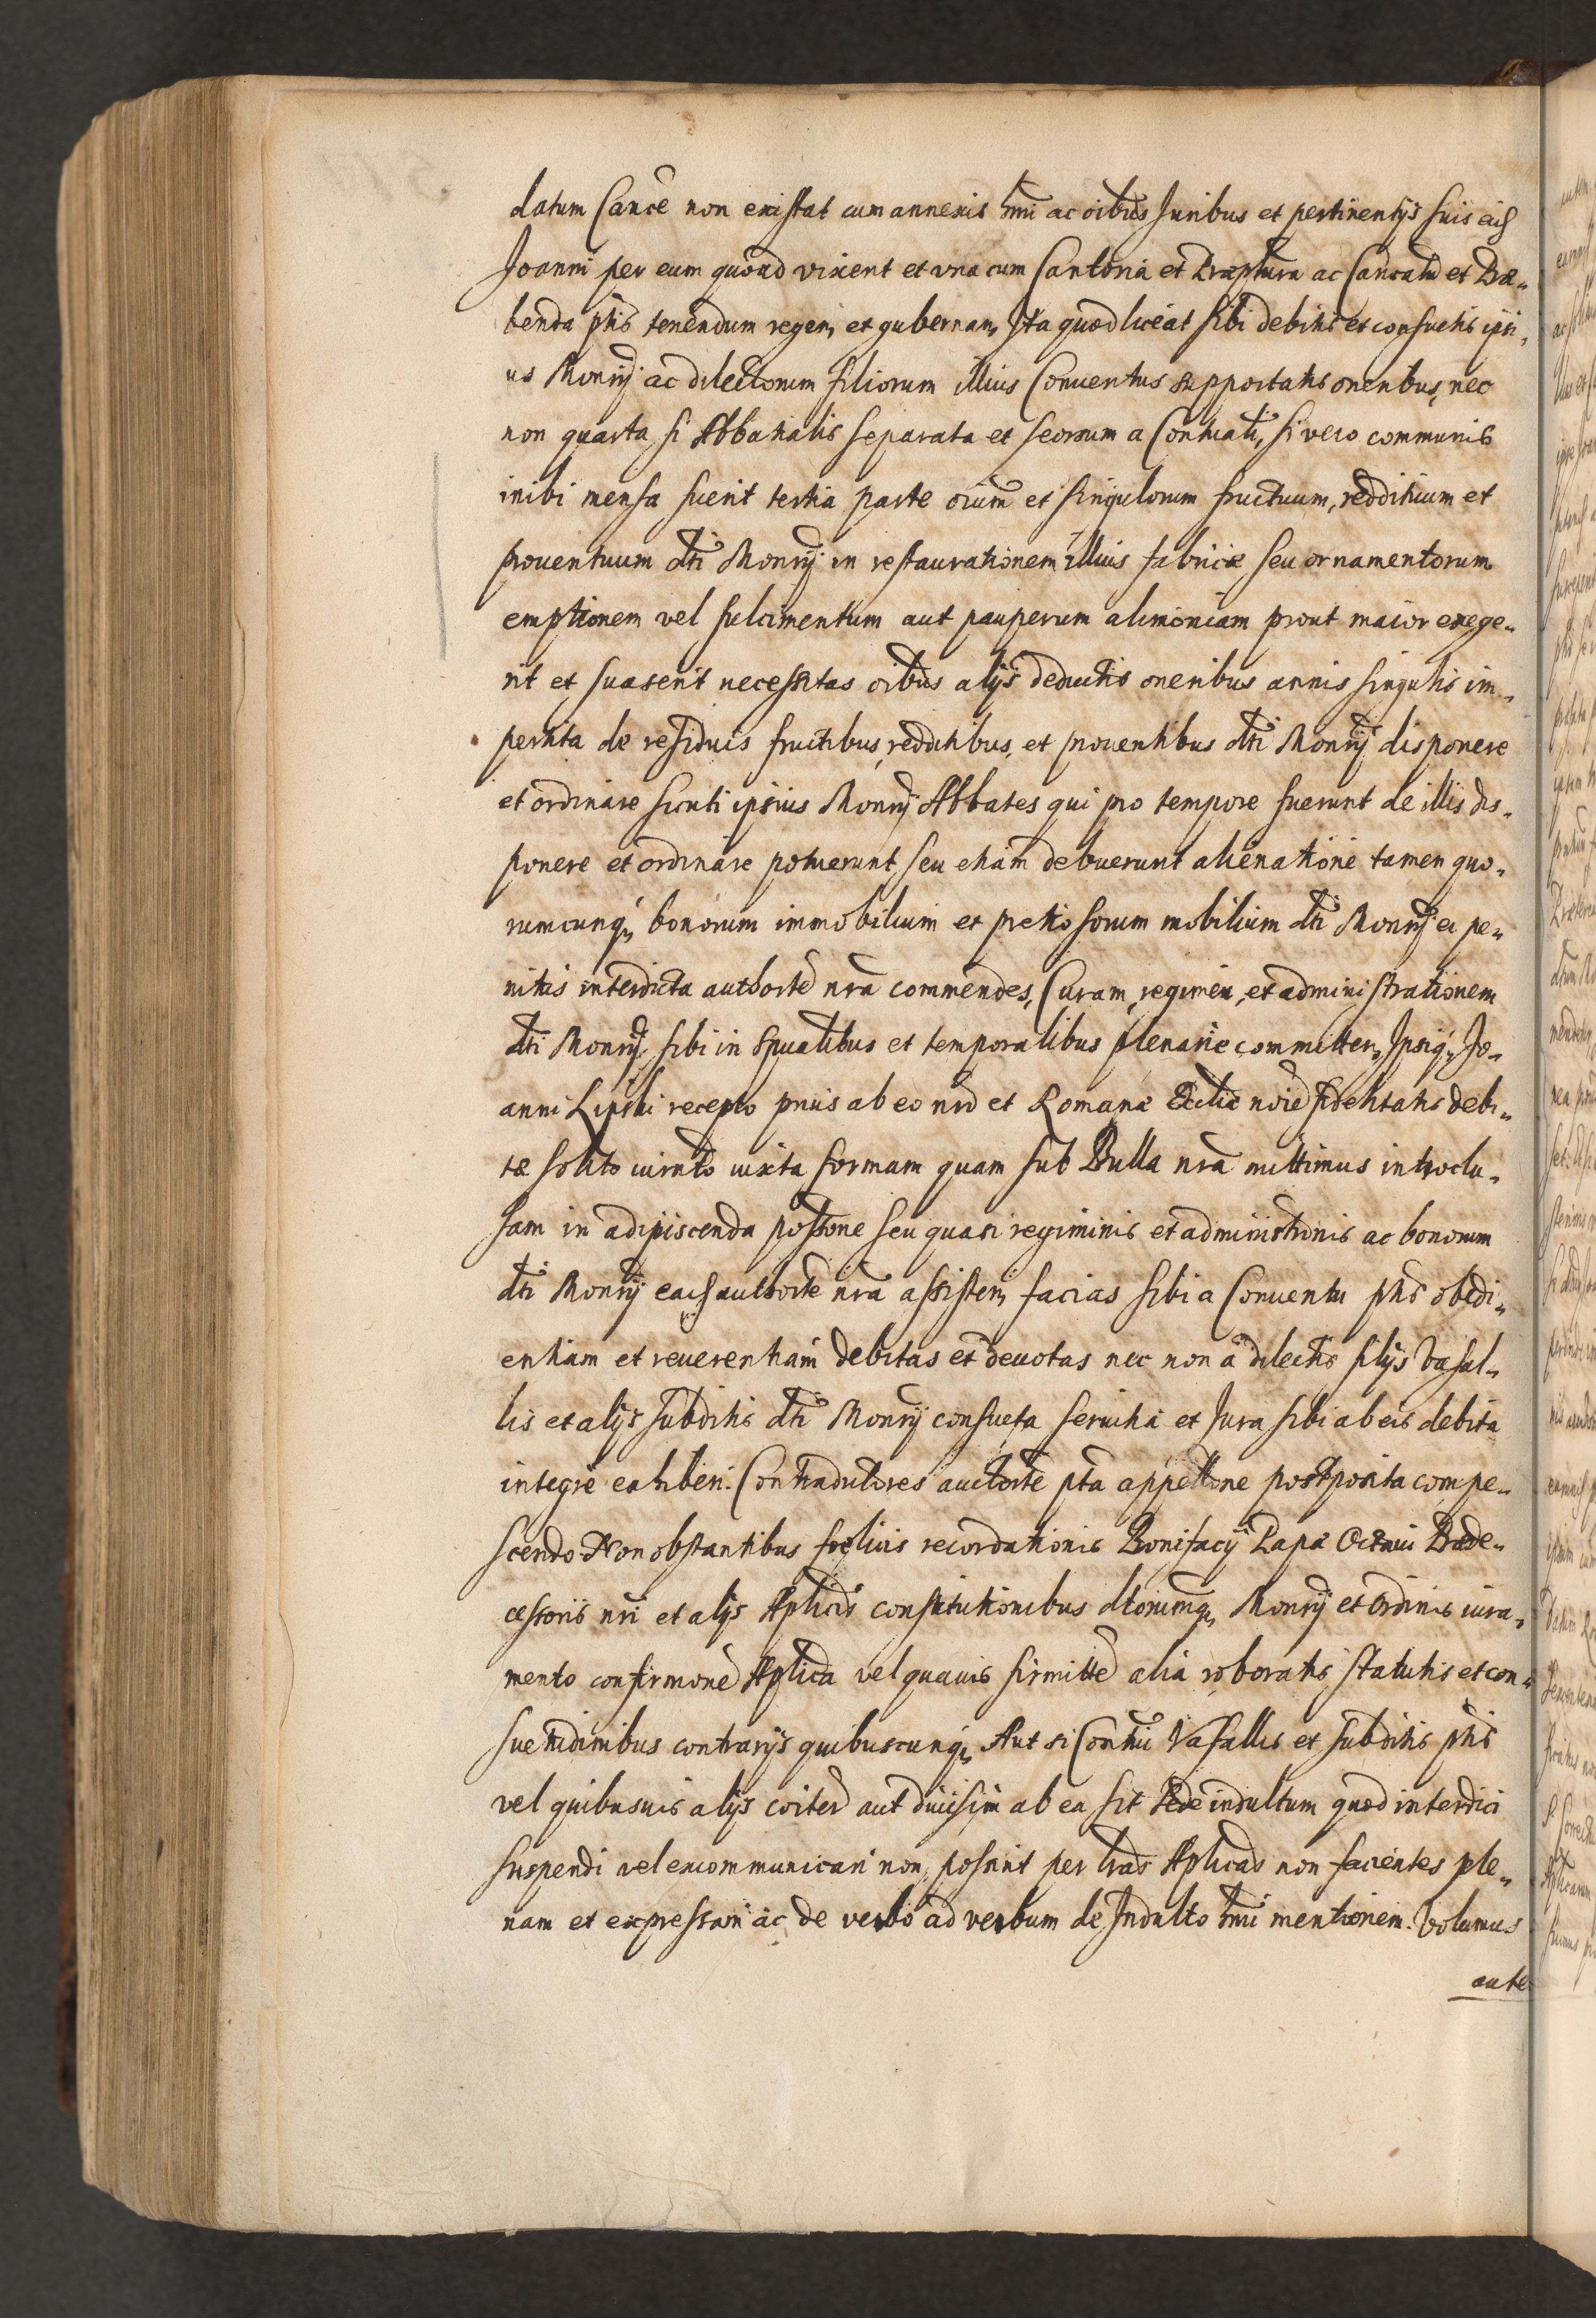 datum Cancê non existat cum annexis hm̃i ac oĩbus Juribus et pertinentijs suis eid
Joanni per eum quoad vixerit et una cum Cantoria et Præptura ac Cancatu et Præ-
benda pñtis tenendum regen, et gubernan, Ita quod liceat sibi debitis et consuetis ipsi-
us Monrij ac dilectorum filiorum illius Conuentus supportatis oneribus, nec
non quarta si Abbatialis separata et seorsum a Conuali, si vero communis
inibi mensa fuerit tertia parte oium et singulorum fructuum, reddituum et
prouentuum dti Monrij in restaurationem illius fabricæ seu ornamentorum
emptionem vel fulcimentum aut pauperum alimoniam prout maior exege-
rit et suaserit necessitas oibus alijs deductis oneribus annis singulis im-
pertita de residuis fructibus, redditibus, et prouentibus dti Monrij disponere
et ordinare sicuti ipsius Monrij Abbates qui pro tempore fuerunt de illis dis-
ponere et ordinare potuerunt, seu etiam debuerunt alienatione tamen quo-
rumcunq, bonorum immobilium et pretiosorum mobilium dti Monrij ei pe-
nitus interdicta authorte nra commendes, Curam, regimen, et administrationem
dti Monrij sibi in Spualibus et temporalibus plenarie committen, Ipsiq, Jo-
anni Lipski recepto prius ab eo nro et Romanæ Ecclie noie fidelitatis debi-
tæ solito iuramto iuxta formam quam sub Bulla nra mittimus introclu-
sam in adipiscenda possone seu quasi regiminis et administronis ac bonorum
dti Monrij ead authorte nra assisten, facias sibi a Conuentu pñtis obedi-
entiam et reuerentiam debitas et deuotas nec non a dilectis filijs Vasal-
lis et alijs subditis dti Monrij consueta seruitia et Jura sibi ab eis debita
integre exhiberi. Contradictores auctorte pta appellone postposita compe-
scendo. Non obstantibus foelicis recordationis Bonifacij Papæ Octaui Præde-
cessoris nri et alijs Aplicis constitutionibus dtorumq, Monrij et Ordinis iura-
mento confirmone Aplica vel quauis firmitte alia roboratis statutis et con-
suetudinibus contrarijs quibuscunq, Aut si Conuui Vasallis et subditis pñtis
vel quibusuis alijs coiter aut diuisim ab ea sit Sede indultum quod interdici
suspendi vel excommunicari non possint per lras Aplicas non facientes ple-
nam et expressam ac de verbo ad verbum de Indulto hmi mentionem. Volumus
aute